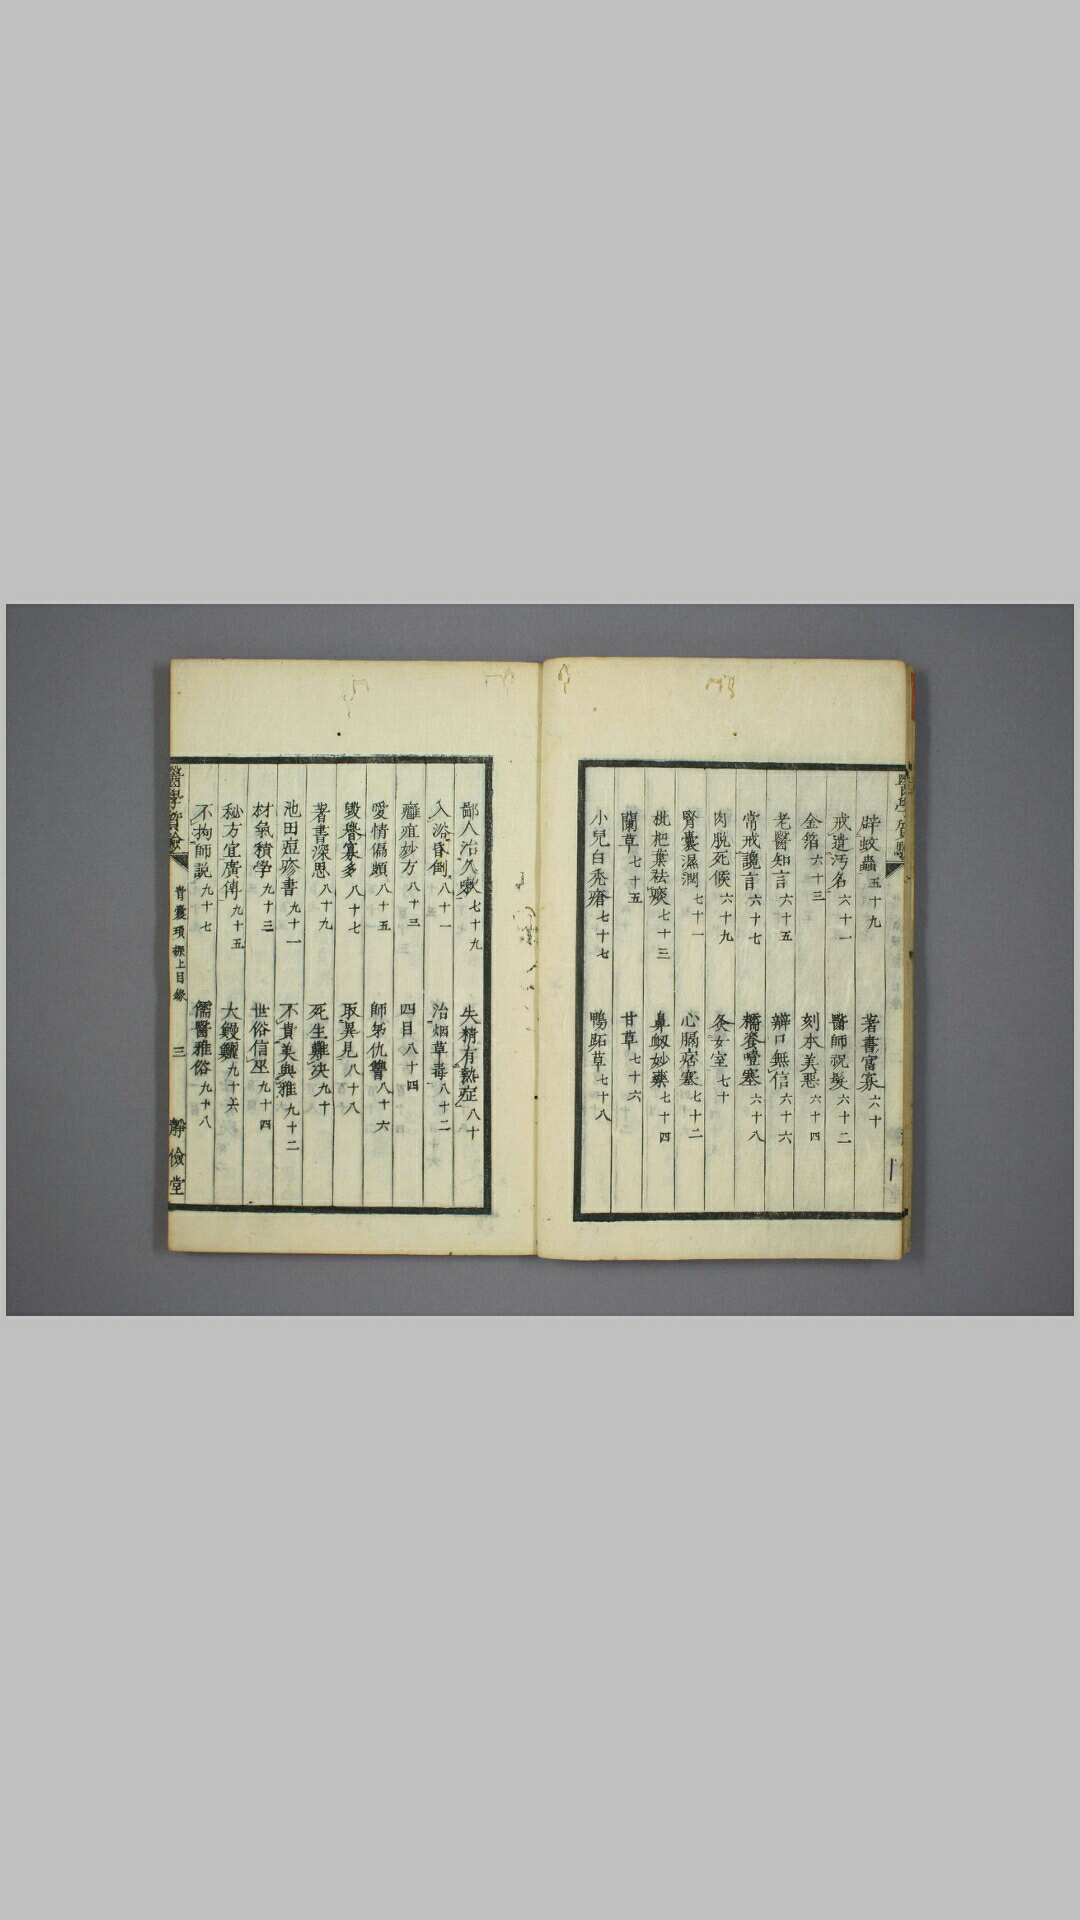 辟蚊蟲五十九
著書富寡六十
戒遣汚名六十一
醫師祝髮六十二
金箔六十三
刻本美惡六十四
老醫知言六十五
辯口無信六十六
常戒讒言六十七
六十八
肉脫死候六十九
灸女室七十
腎囊濕潤七十一
心膈痞塞七十二
枇杷葉祛痰七十三
鼻衂妙藥七十四
蘭草七十五
甘草七十六
小兒白禿瘡七十七
鴨跖草七十八
鄙人治久嗽七十九
失精有熱症八十
入浴昏倒八十一
治烟草毒八十二
癰疽妙方八十三
四目八十四
愛情偏頗八十五
師弟仇讐八十六
毀譽寡多八十七
取異見八十八
著書深思八十九
死生難決九十
池田痘疹書九十一
不貴美與雅九十二
材氣積學九十三
世俗信巫九十四
秘方宜廣傳九十五
大鰻鱺九十六
不拘師説九十七
儒醫雅俗九十八
醫學質驗
青囊瑣探上目錄
三
靜儉堂